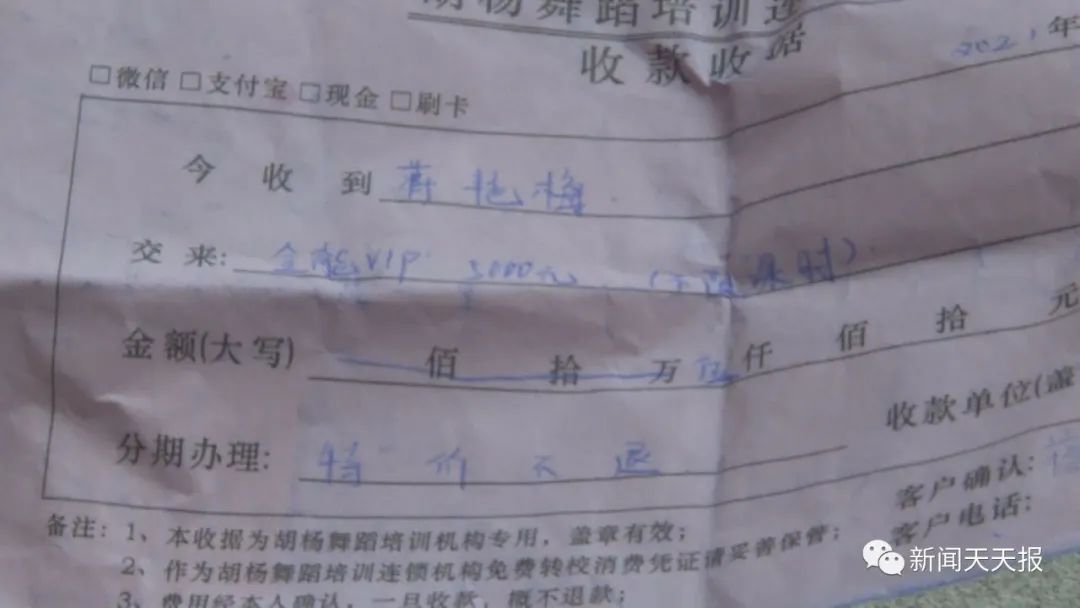 胡杨舞蹈培训连
收款收据
2021年
□微信 □支付宝 □现金 □刷卡
今收到 蒋艳梅
交来: 全能VIP 5000元 (不限课时)
金额(大写) 佰 拾 万 伍 仟 佰 拾 元
收款单位(盖
分期办理: 特价不退
客户确认:
客户电话:
备注: 1、本收据为胡杨舞蹈培训机构专用，盖章有效；
2、作为胡杨舞蹈培训连锁机构免费转校消费凭证请妥善保管；
3、费用经本人确认，一旦收款，概不退款；
新闻天天报